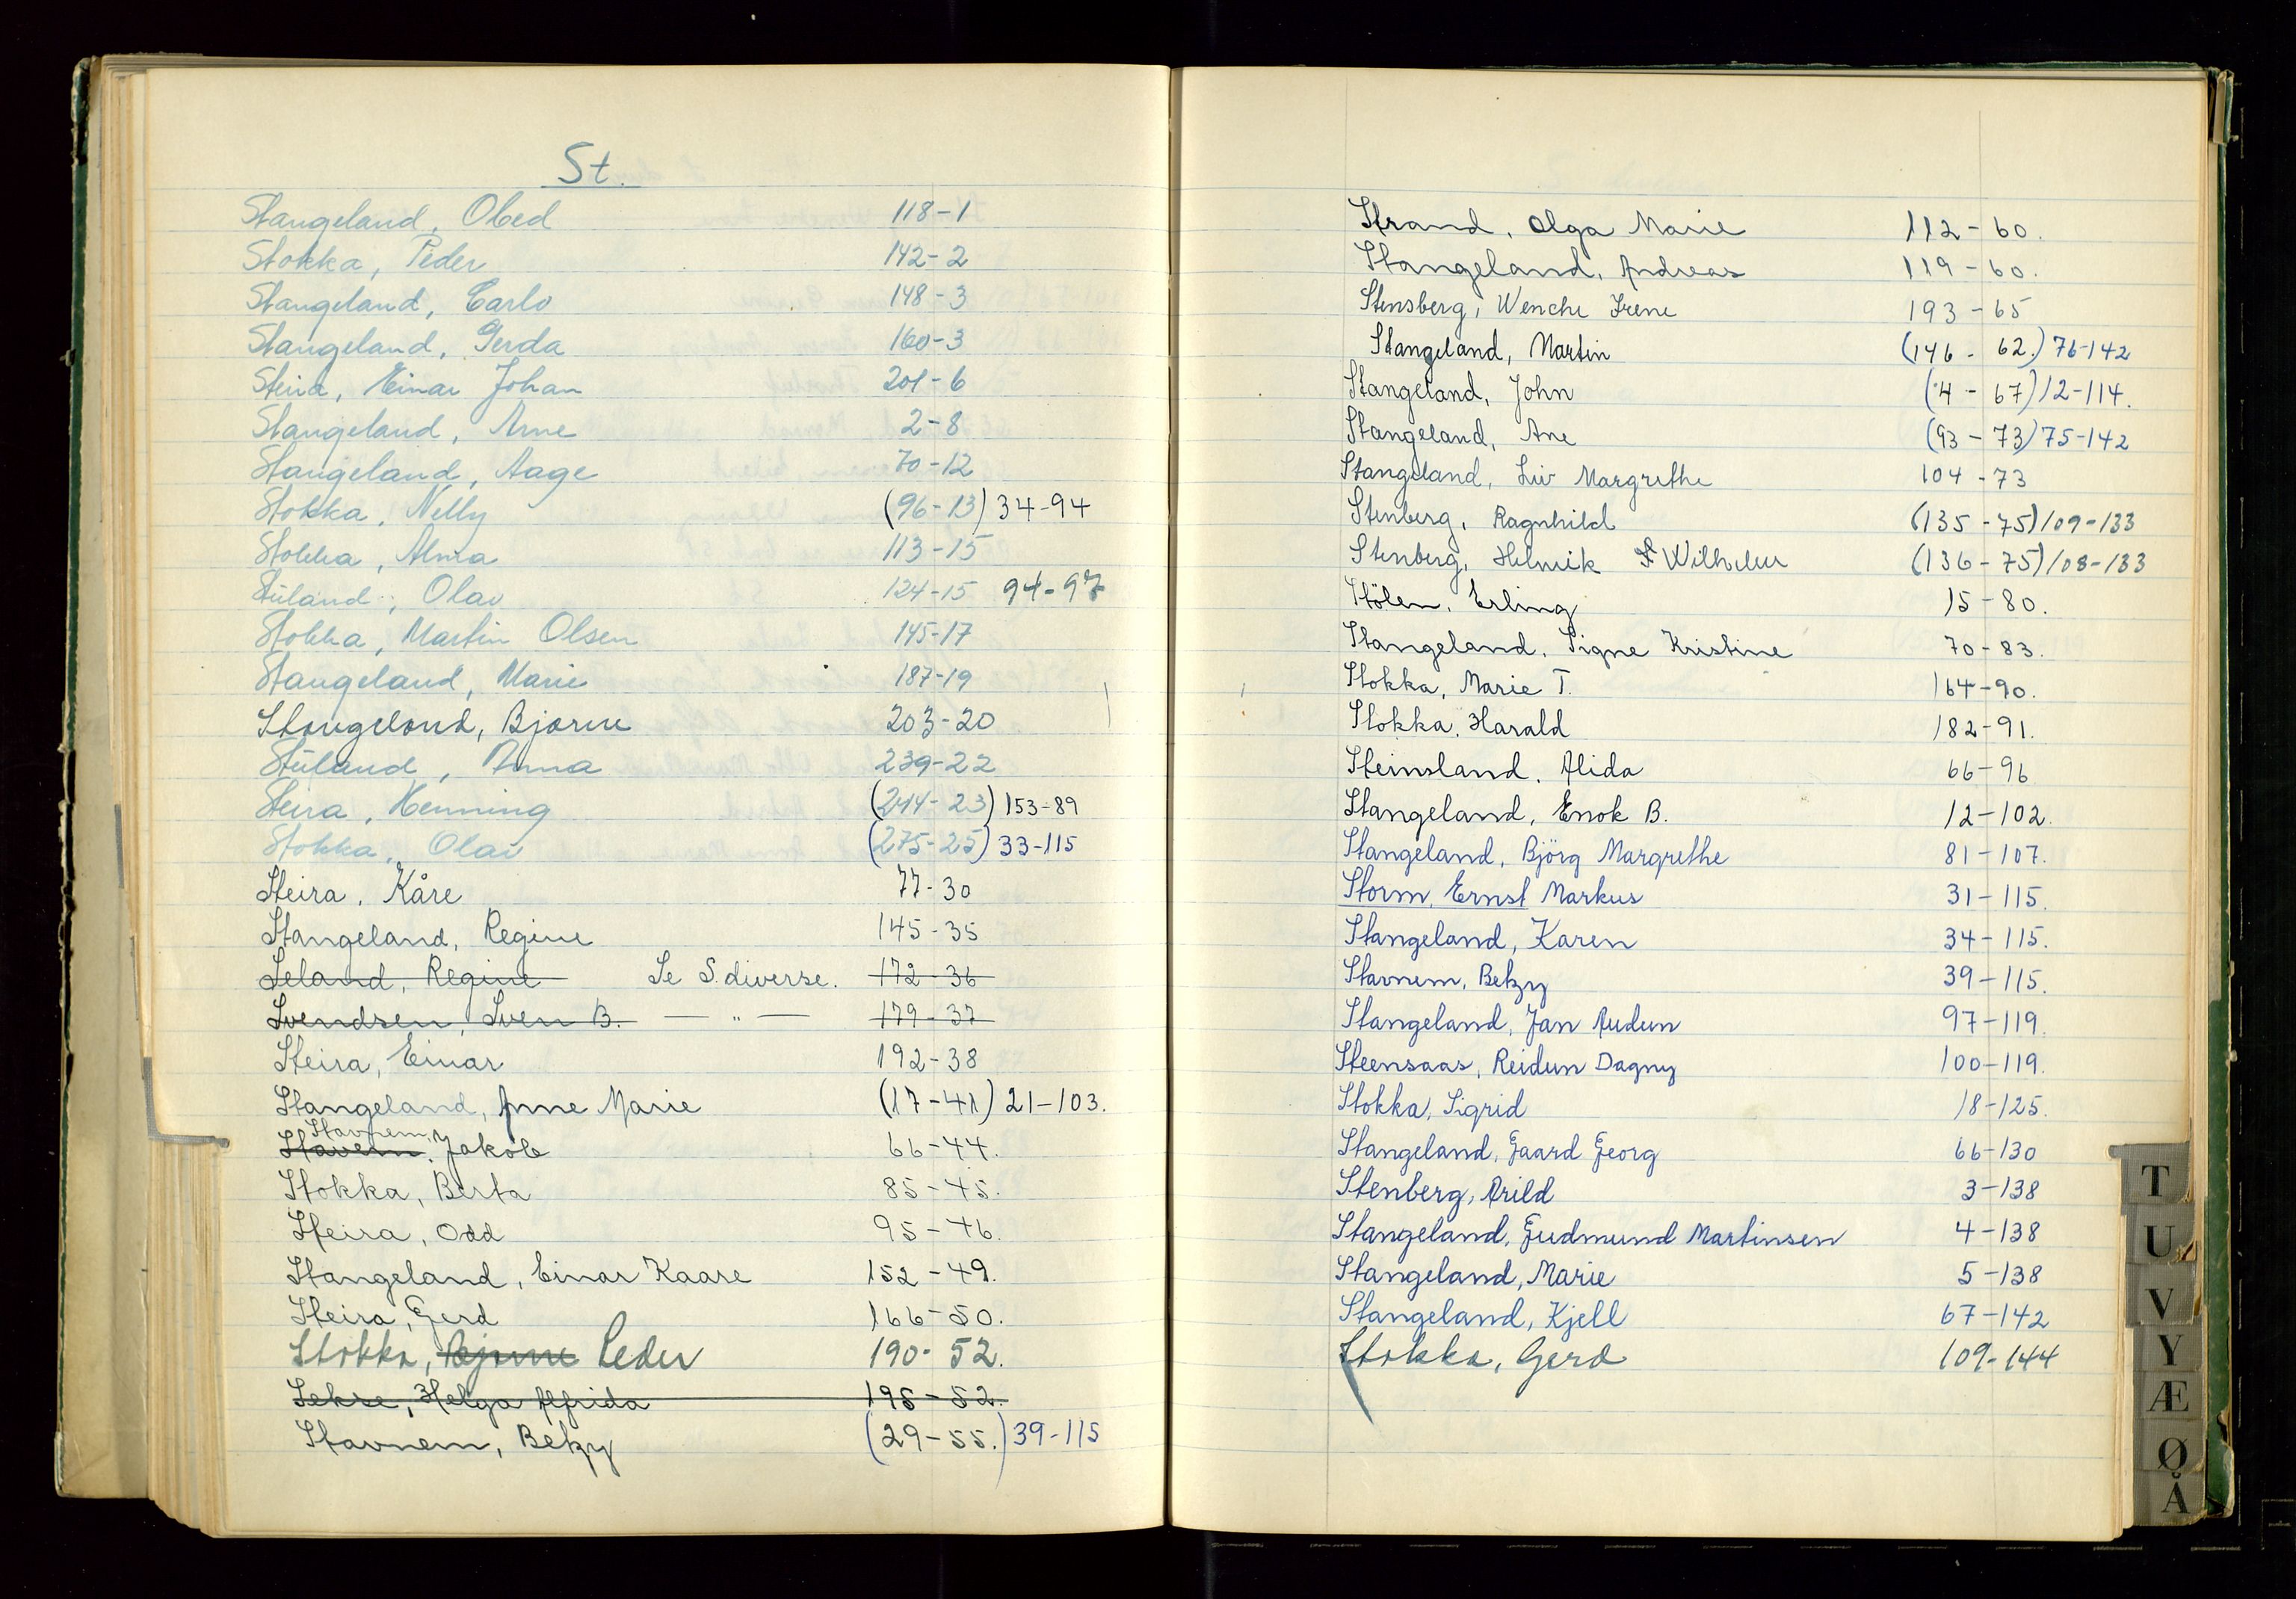 St.
Stangeland, Obed 118-1
Stokka, Peder 142-2
Stangeland, Carlo 148-3
Stangeland, Gerda 160-3
Steira, Einar Johan 201-6
Stangeland, Arne 2-8
Stangeland, Aage 70-12
Stokka, Nelly (96-13) 34-94
Stokka, Alma 113-15
Stüland, Olav 124-15 94-97
Stokka, Martin Olsen 145-17
Stangeland, Marie 187-19
Stangeland, Bjarne 203-20
Stüland, Anna 239-22
Steira, Henning (244-23) 153-89
Stokka, Olav (275-25) 33-115
Steira, Kåre 77-30
Stangeland, Regine 145-35
Seland, Regine Se S. diverse. 172-36
Svendsen, Sven B. — " — 179-37
Steira, Einar 192-38
Stangeland, Anne Marie (17-41) 21-103.
Stavnem,
Stavem, Jakob 66-44.
Stokka, Berta 85-45.
Steira, Odd 95-46.
Stangeland, Einar Kaare 152-49.
Steira, Gerd 166-50.
Stokka, Bjarne Peder 190-52.
Sekse, Helga Alfrida 195-52.
Stavnem, Betzy (29-55.) 39-115
Strand, Olga Marie 112-60.
Stangeland, Andreas 119-60.
Stensberg, Wenche Irene 193-65
Stangeland, Martin (146-62.) 76-142
Stangeland, John (4-67) 12-114.
Stangeland, Ane (93-73) 75-142
Stangeland, Liv Margrethe 104-73
Stenberg, Ragnhild (135-75) 109-133
Stenberg, Helmik Wilhelm (136-75) 108-133
Stölen, Erling 15-80.
Stangeland, Signe Kristine 70-83.
Stokka, Marie T. 164-90.
Stokka, Harald 182-91.
Steinsland, Alida 66-96
Stangeland, Enok B. 12-102.
Stangeland, Björg Margrethe 81-107.
Storm, Ernst Markus 31-115.
Stangeland, Karen 34-115.
Stavnem, Betzy 39-115.
Stangeland, Jan Audun 97-119.
Steensaas, Reidun Dagny 100-119.
Stokka, Sigrid 18-125.
Stangeland, Gaard Georg 66-130
Stenberg, Arild 3-138
Stangeland, Gudmund Martinsen 4-138
Stangeland, Marie 5-138
Stangeland, Kjell 67-142
Stokka, Gerd 109-144
T
U
V
Y
Æ
Ø
Å